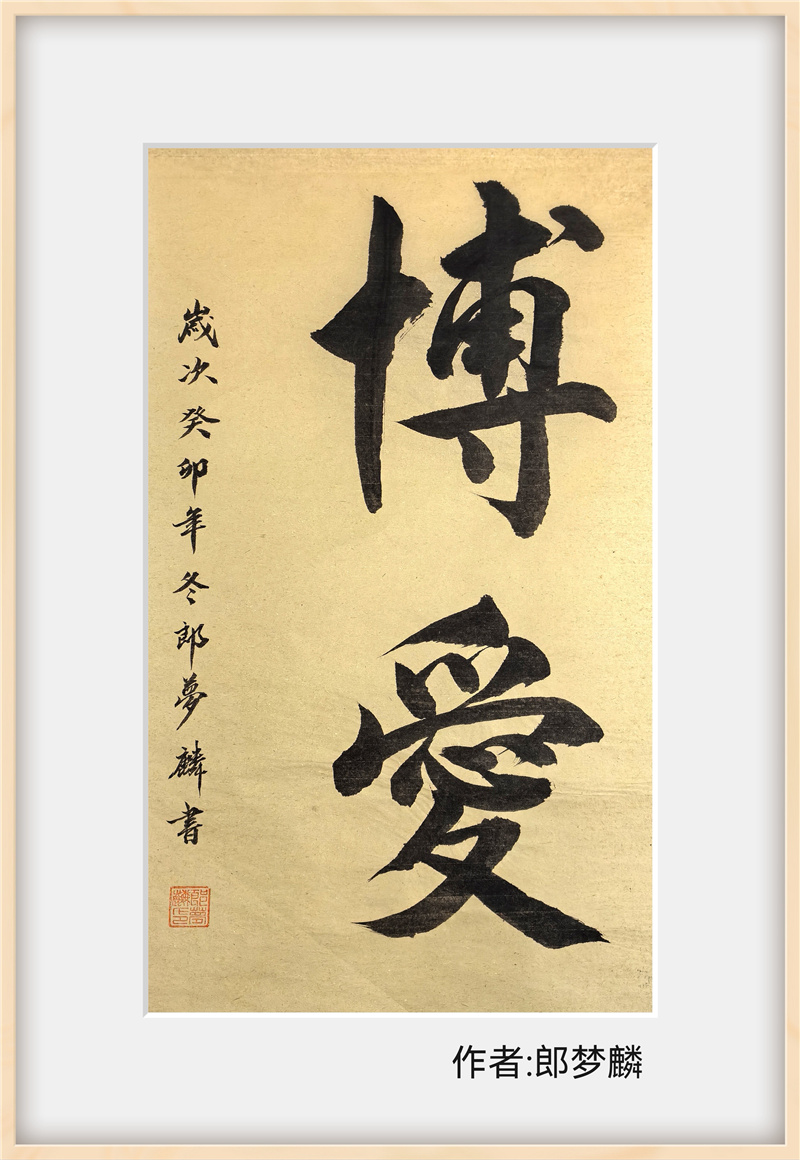 博愛
歲次癸卯年冬郎夢麟書
郎夢麟印
作者:郎梦麟